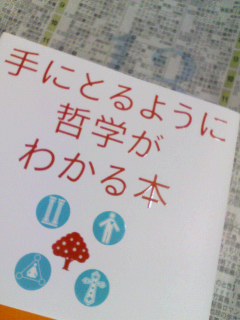 手にとるように
哲学が
わかる本